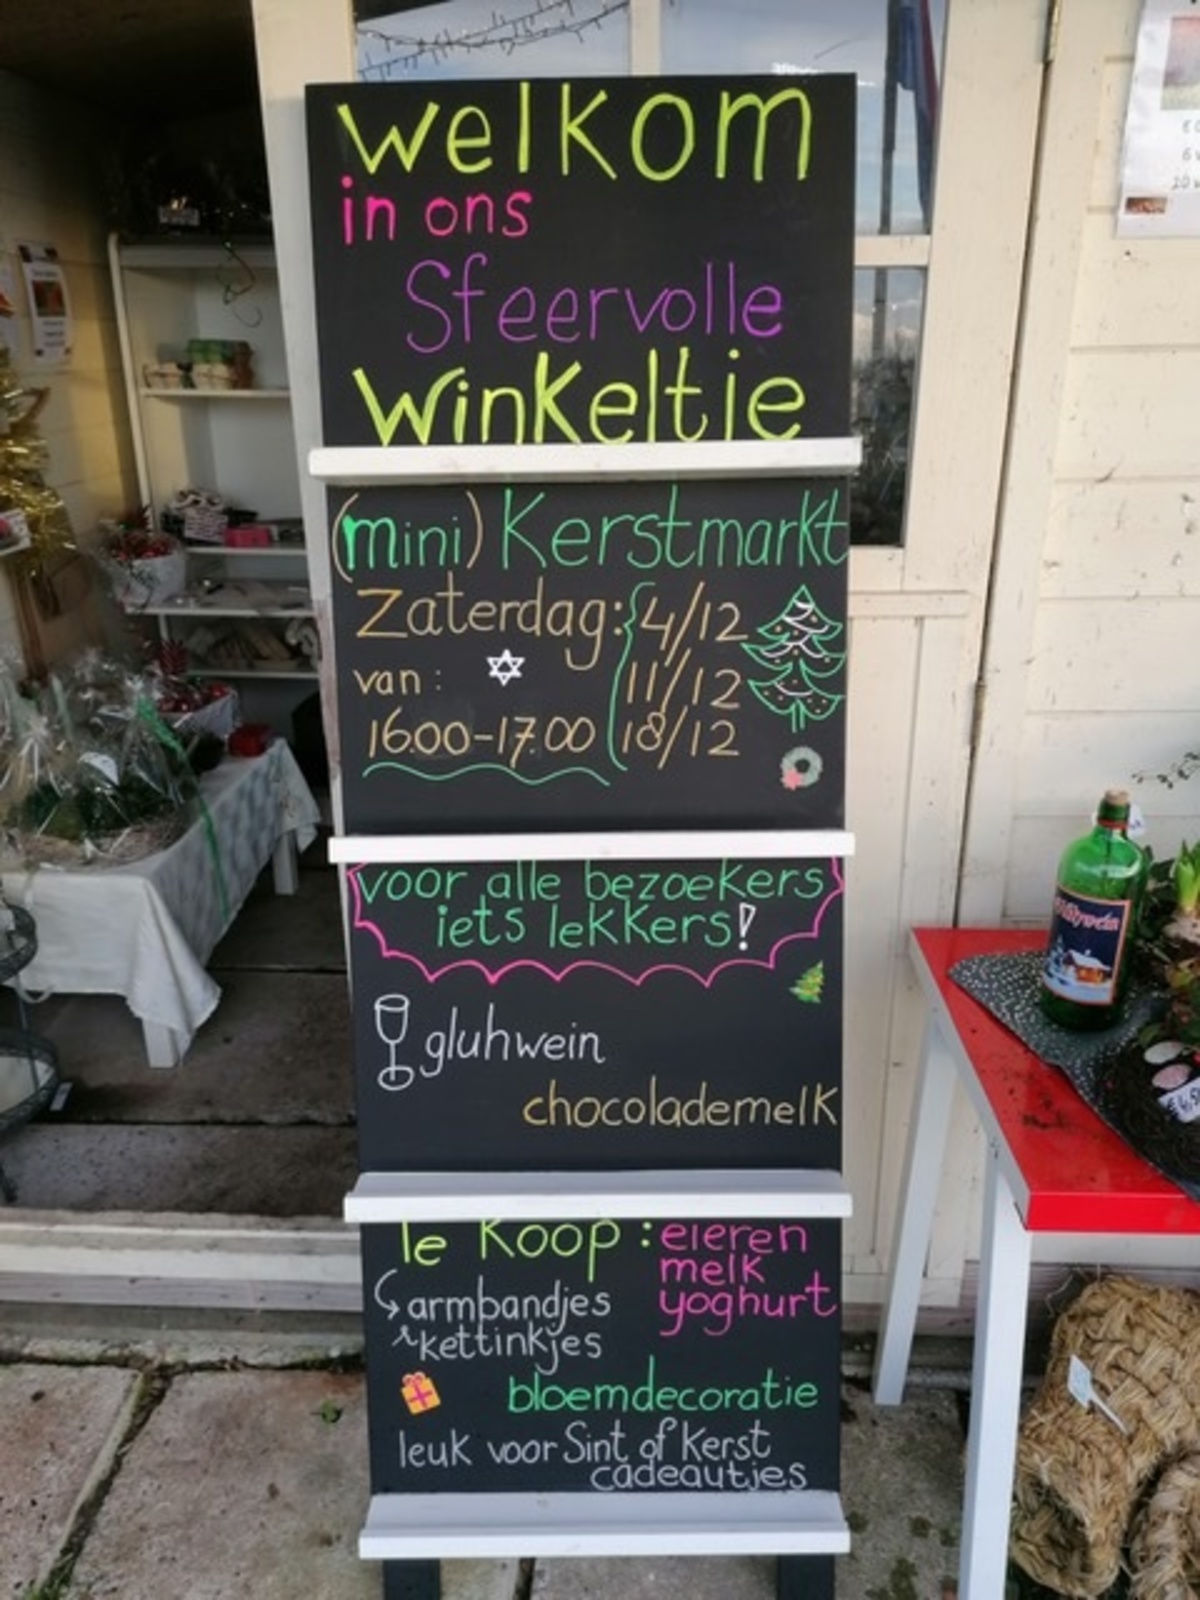 welkom
in ons
Sfeervolle
Winkeltje
(mini) Kerstmarkt
Zaterdag: 4/12
van: 11/12
16.00-17.00 18/12
voor alle bezoekers
iets lekkers!
gluhwein
chocolademelk
Te Koop: eieren
melk
armbandjes yoghurt
kettinkjes
bloemdecoratie
leuk voor Sint of Kerst
cadeautjes